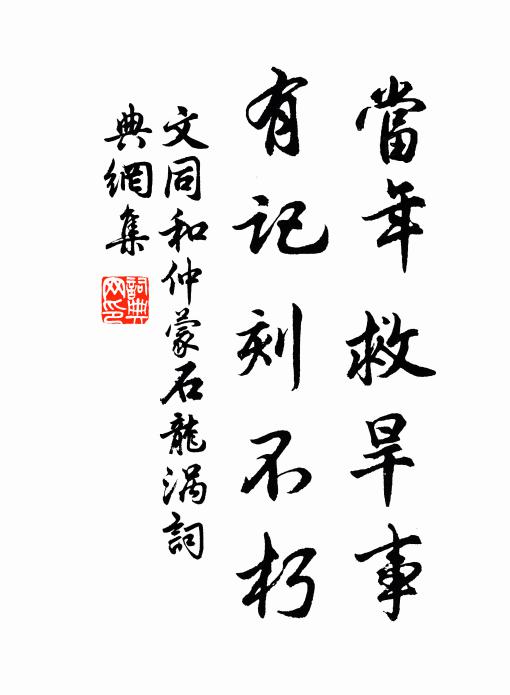 當年救旱事
有記刻不朽
文同和仲蒙石龍渦詞
典網集
詞典網印